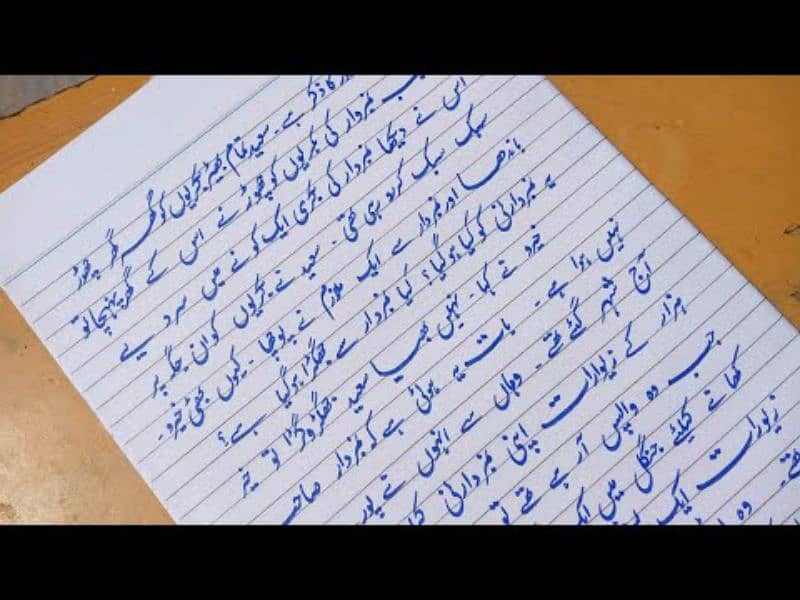 کا ذکر ہے۔ سعید تمام بھیڑ بکریوں کو گھر گھر چھوڑ
نمبردار کی بکریوں کو چھوڑنے اس کے گھر پہنچا تو
اس نے دیکھا نمبردار کی بکری ایک کونے میں سر دیے
سبک سبک کر رو رہی تھی۔ سعید نے بکریوں کو ان جگہ پر
باندھا اور نمبردار سے ایک ملازم نے پوچھا۔ کیوں بھئی خیرو۔
یہ نمبردارنی کو کیا ہو گیا؟ کیا نمبردار سے جھگڑا ہو گیا ہے؟
خیرو نے کہا۔ نہیں بھیا سعید جھگڑوگڑا تو خیر
نہیں ہوا ہے۔ بات یہ ہوئی ہے کہ نمبردار صاحب
آج شہر گئے تھے۔ وہاں سے انہوں نے پور
ہزار کے زیورات اپنی نمبردارنی
جب وہ واپس آ رہے تھے تو
کھانے کیلئے جنگل میں ایک
زیورات ایک
تھے۔ وہ